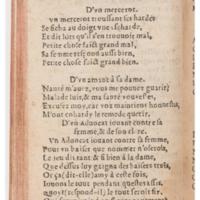 D'vn mercerot.
vn mercerot troussant ses hardes
Se ficha au doigt vne escharde,
Et dit lors qu'il s'en trouuoit mal,
Petite chose faict grand mal,
Sa femme respond aussi bien,
Petite chose faict grand bien.
D'vn amant à sa dame.
Nauré m'auez, vous me pouuez guarir
Malade suis, & ma santé vous
Excusez moy, car vos maintiens honnestes,
M'ont enhardy le remede querir.
D'vn Aduocat iouant contre sa
femme, & de son clerc.
Vn Aduocat iouant contre sa femme,
Pour vn baiser que nommer n'oserois,
Le ieu dit tant & si bien à la dame,
Que dessus luy gaigna des baisers trois.
Or ça (dit-elle) amy à ceste fois,
Iouons le tout pendant
(respond-il) le tout seroit